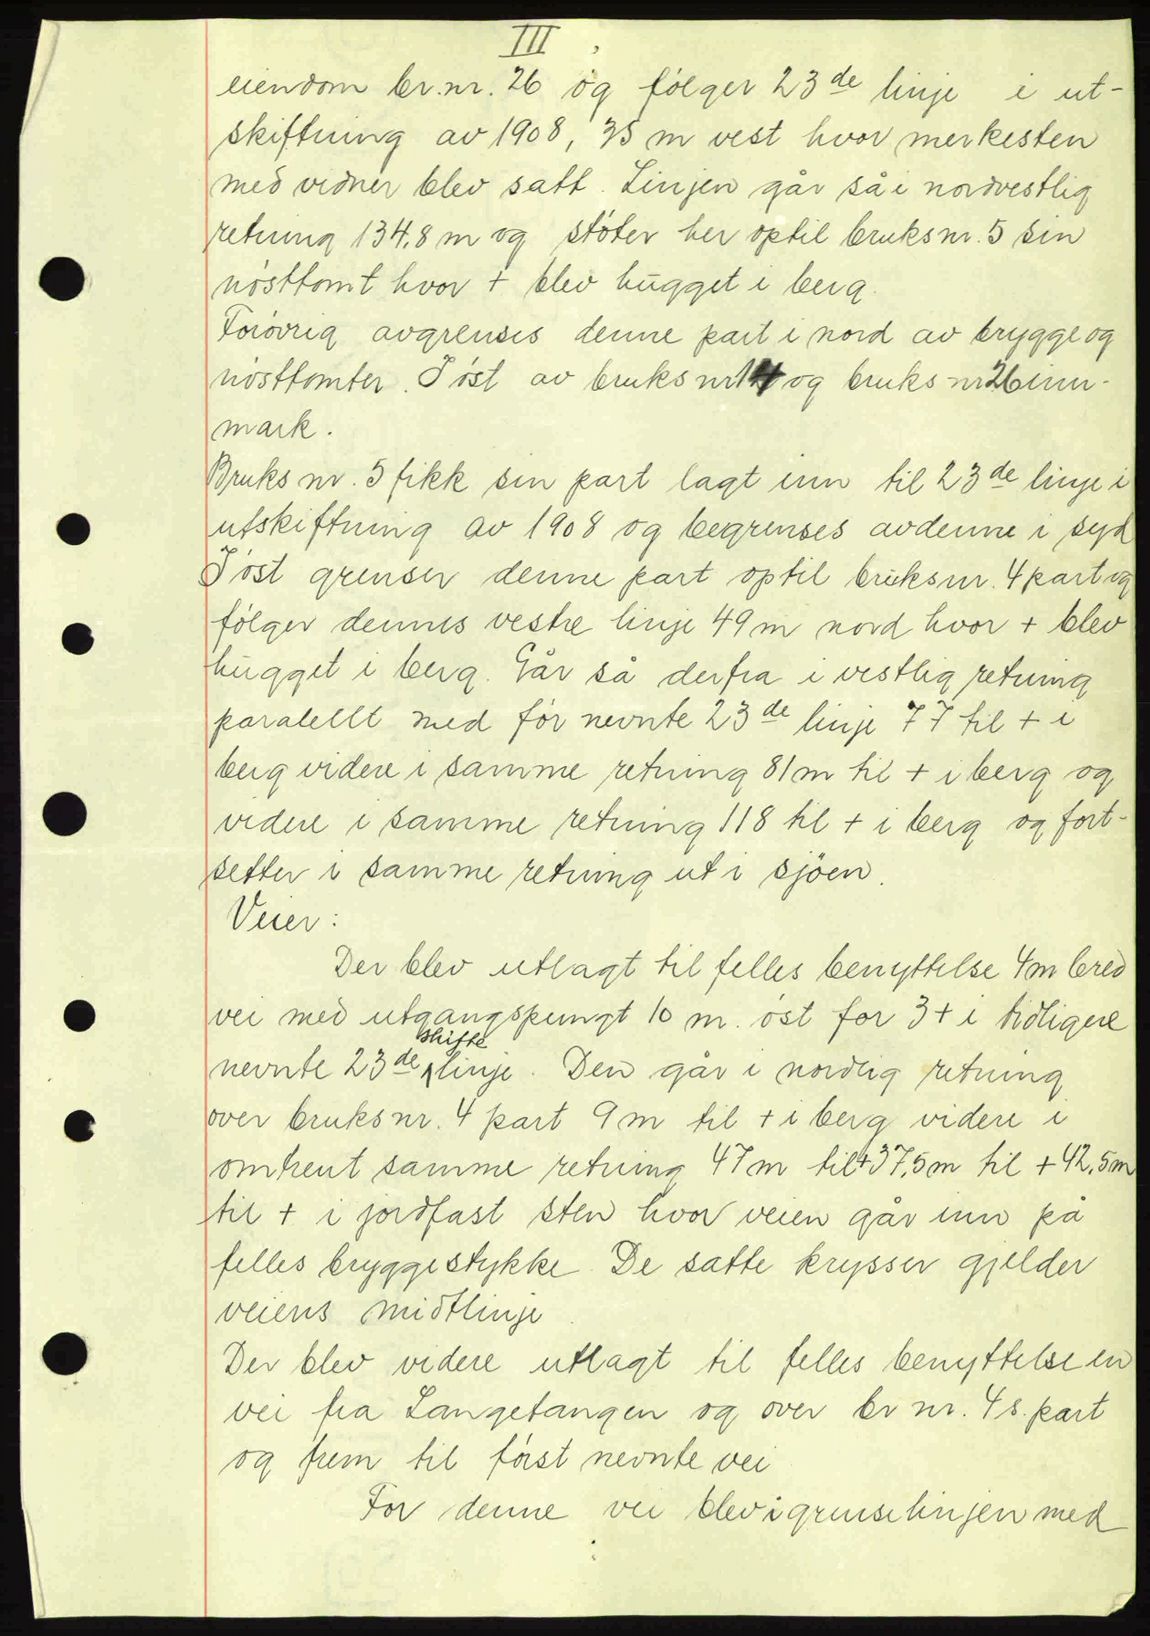 III
eiendom br.nr. 26 og følger 23de linje i ut-
skiftning av 1908, 35 m vest hvor merkesten
med vidner blev satt. Linjen går så i nordvestlig
retning 134,8 m og støter her optil bruksnr. 5 sin
nøsttomt hvor + blev hugget i berg.
Forøvrig avgrenses denne part i nord av brygge og
nøsttomter. I øst av bruksnr 14 og bruks nr 26 inn-
mark.
Bruks nr. 5 fikk sin part lagt inn til 23de linje i
utskiftning av 1908 og begrenses av denne i syd
I øst grenser denne part optil bruksnr. 4 part og
følger dennes vestre linje 49 m nord hvor + blev
hugget i berg. Går så derfra i vestlig retning
paralellt med før nevnte 23de linje 77 til + i
berg videre i samme retning 81 m til + i berg og
videre i samme retning 118 til + i berg og fort-
setter i samme retning ut i sjøen.
Veier:
Der blev utlagt til felles benyttelse 4 m bred
vei med utgangspungt 10 m. øst for 3 + i tidligere
nevnte 23de skifte linje. Den går i nordlig retning
over bruksnr. 4 part 9 m til + i berg videre i
omtrent samme retning 47 m til + 37,5 m til + 42,5 m
til + i jordfast sten hvor veien går inn på
felles bryggestykke. De satte krysser gjelder
veiens midtlinje
Der blev videre utlagt til felles benyttelse en
vei fra Langetangen og over br nr. 4 s. part
og frem til først nevnte vei
For denne vei blev i grenselinjen med